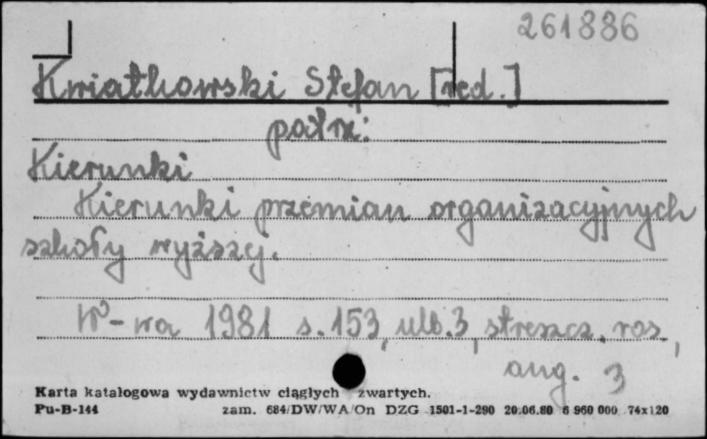 261886
Kwiatkowski Stefan [red.]
patrz:
Kierunki
Kierunki przemian organizacyjnych
szkoły wyższej.
W-wa 1981 s. 153, ulb. 3, streszcz. ros.,
ang. 3
Karta katalogowa wydawnictw ciągłych zwartych.
Pu-B-144 zam. 684/DW/WA/On DZG 1501-1-290 20.06.80 6 960 000 74x120